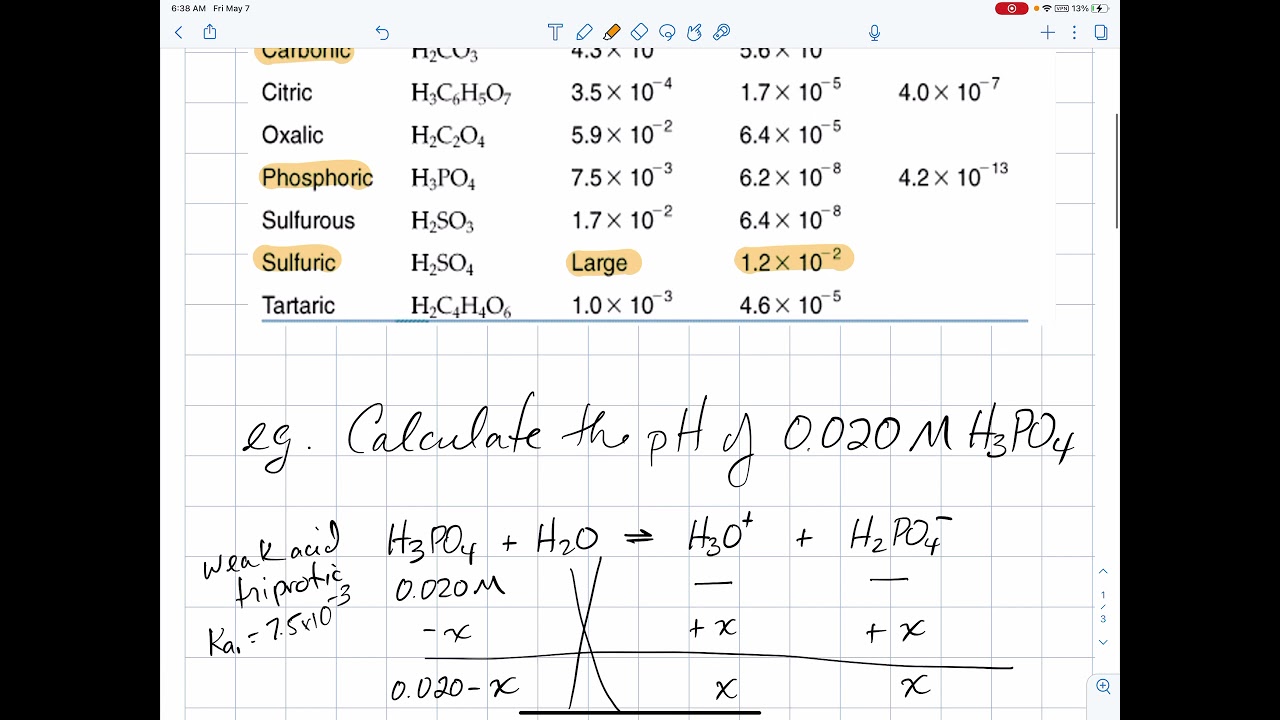 6:38 AM Fri May 7
VPN 13%
T
Carbonic H₂CO₃ 4.3 × 10 5.6 × 10
Citric H₃C₆H₅O₇ 3.5 × 10⁻⁴ 1.7 × 10⁻⁵ 4.0 × 10⁻⁷
Oxalic H₂C₂O₄ 5.9 × 10⁻² 6.4 × 10⁻⁵
Phosphoric H₃PO₄ 7.5 × 10⁻³ 6.2 × 10⁻⁸ 4.2 × 10⁻¹³
Sulfurous H₂SO₃ 1.7 × 10⁻² 6.4 × 10⁻⁸
Sulfuric H₂SO₄ Large 1.2 × 10⁻²
Tartaric H₂C₄H₄O₆ 1.0 × 10⁻³ 4.6 × 10⁻⁵
eg. Calculate the pH of 0.020 M H₃PO₄
weak acid
triprotic
Ka₁ = 7.5x10⁻³
H₃PO₄ + H₂O ⇌ H₃O⁺ + H₂PO₄⁻
0.020M — —
-x +x +x
0.020-x x x
1
/
3